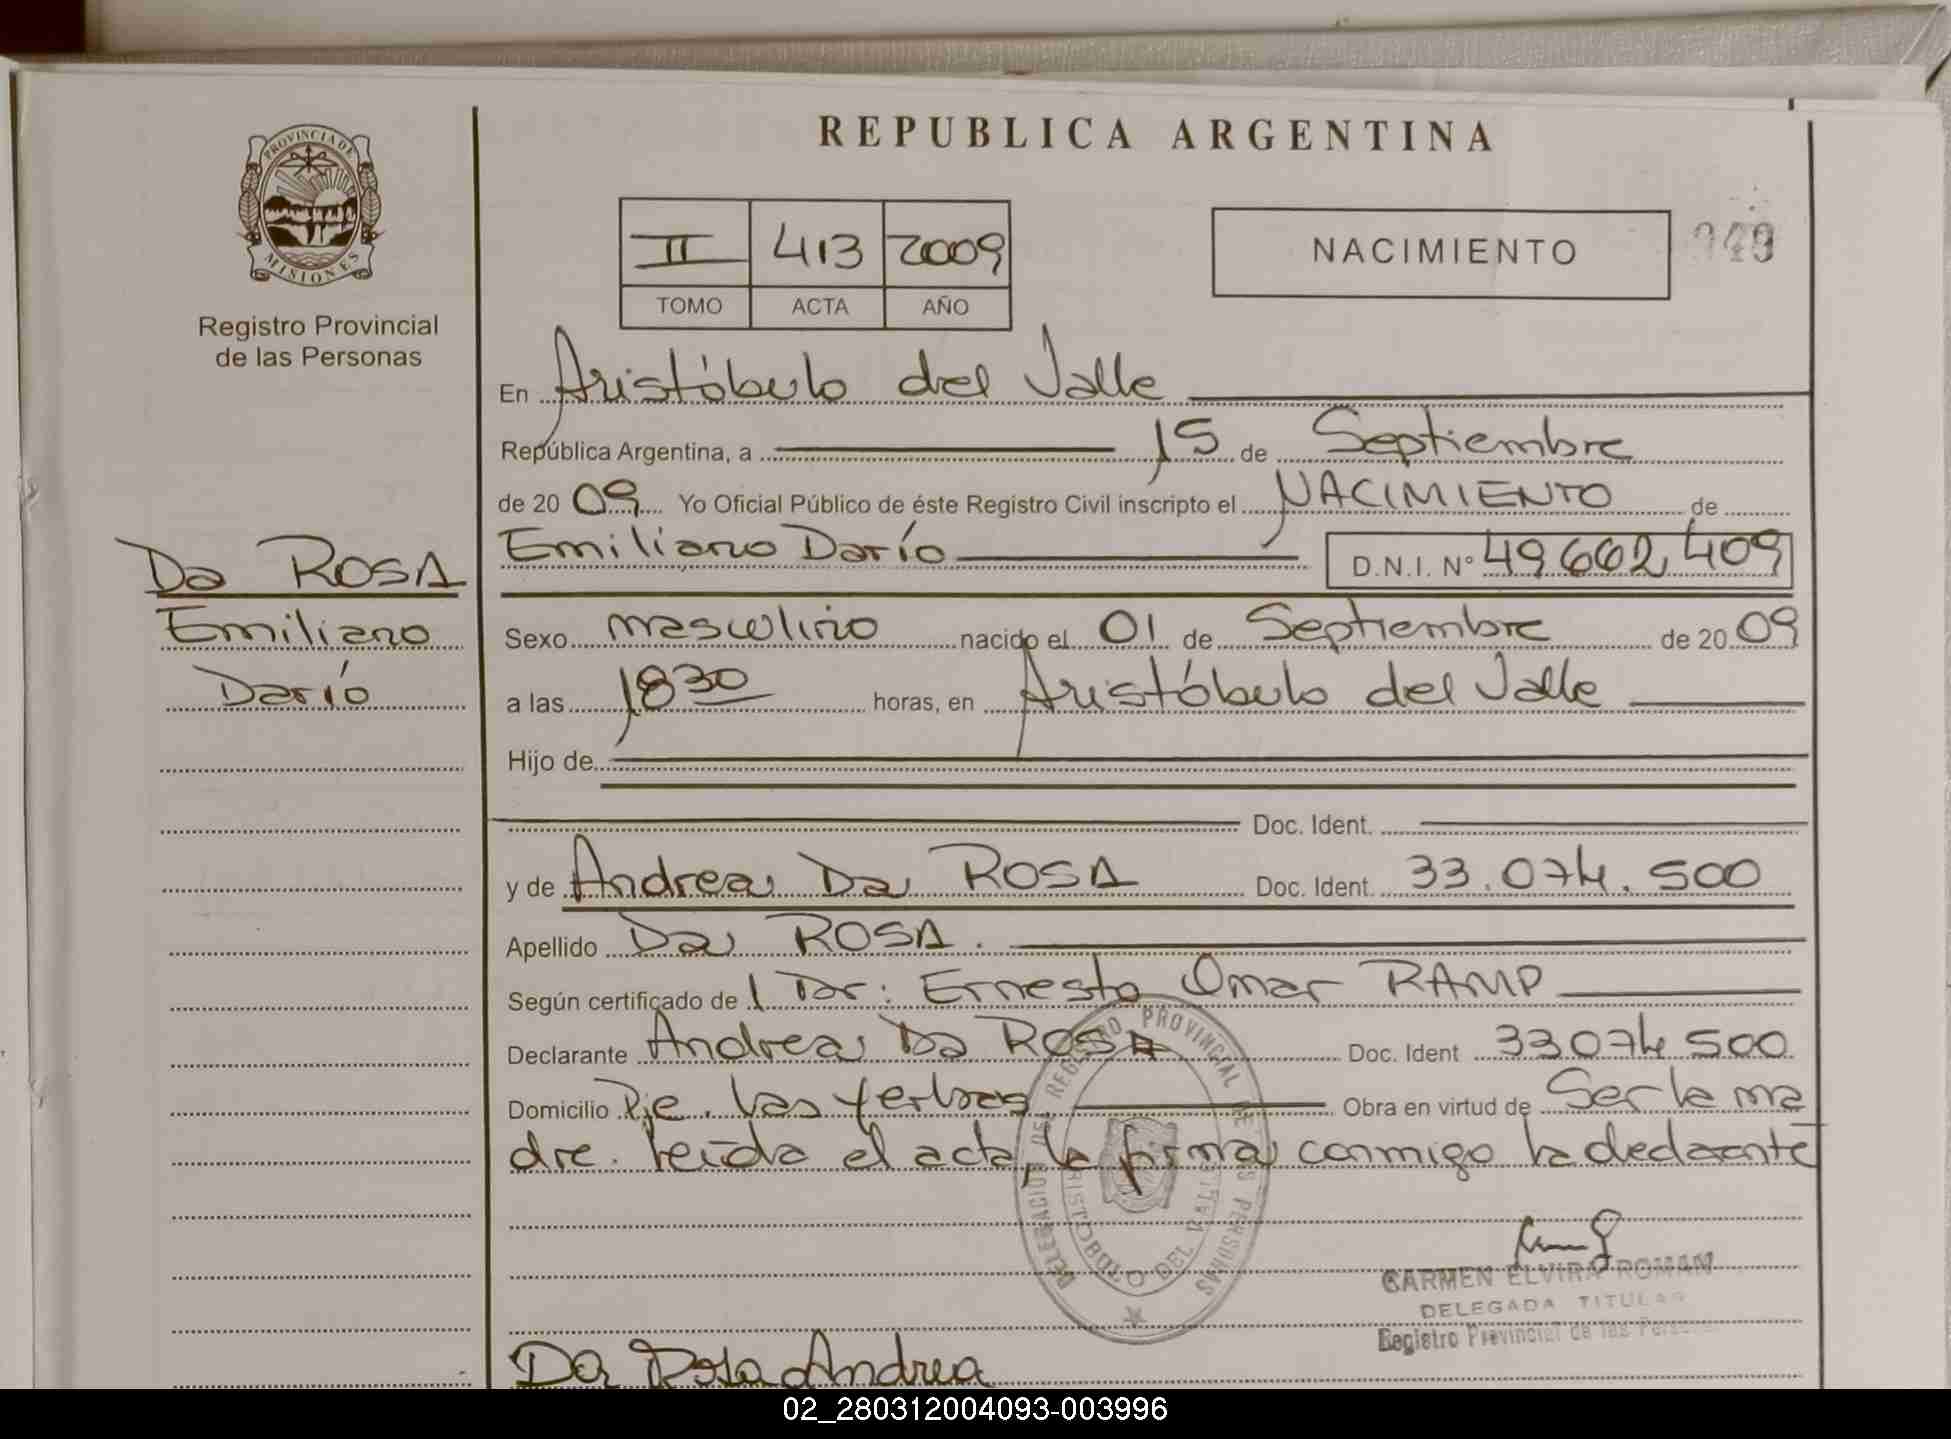 REPUBLICA ARGENTINA
PROVINCIA DE MISIONES
Registro Provincial
de las Personas
II 413 2009
TOMO ACTA AÑO
NACIMIENTO
En Aristóbulo del Valle
República Argentina, a 15 de Septiembre
de 2009 Yo Oficial Público de éste Registro Civil inscripto el NACIMIENTO de
Emiliano Darío D.N.I. N° 49 662 409
Da ROSA
Emiliano
Darío
Sexo masculino nacido el 01 de Septiembre de 2009
a las 1830 horas, en Aristóbulo del Valle
Hijo de
Doc. Ident.
y de Andrea Da ROSA Doc. Ident. 33.074.500
Apellido Da ROSA.
Según certificado de Dr: Ernesto Omar RAMP
Declarante Andrea Da ROSA Doc. Ident 33074500
Domicilio Pje. Las Yerbas Obra en virtud de Ser la ma
dre. Leída el acta, la firma conmigo la declarante
DELEGACION DEL REGISTRO PROVINCIAL DE LAS PERSONAS
ARISTOBULO DEL VALLE
CARMEN ELVIRA ROMAN
DELEGADA TITULAR
Registro Provincial de las Personas
Da Rosa Andrea
02_280312004093-003996